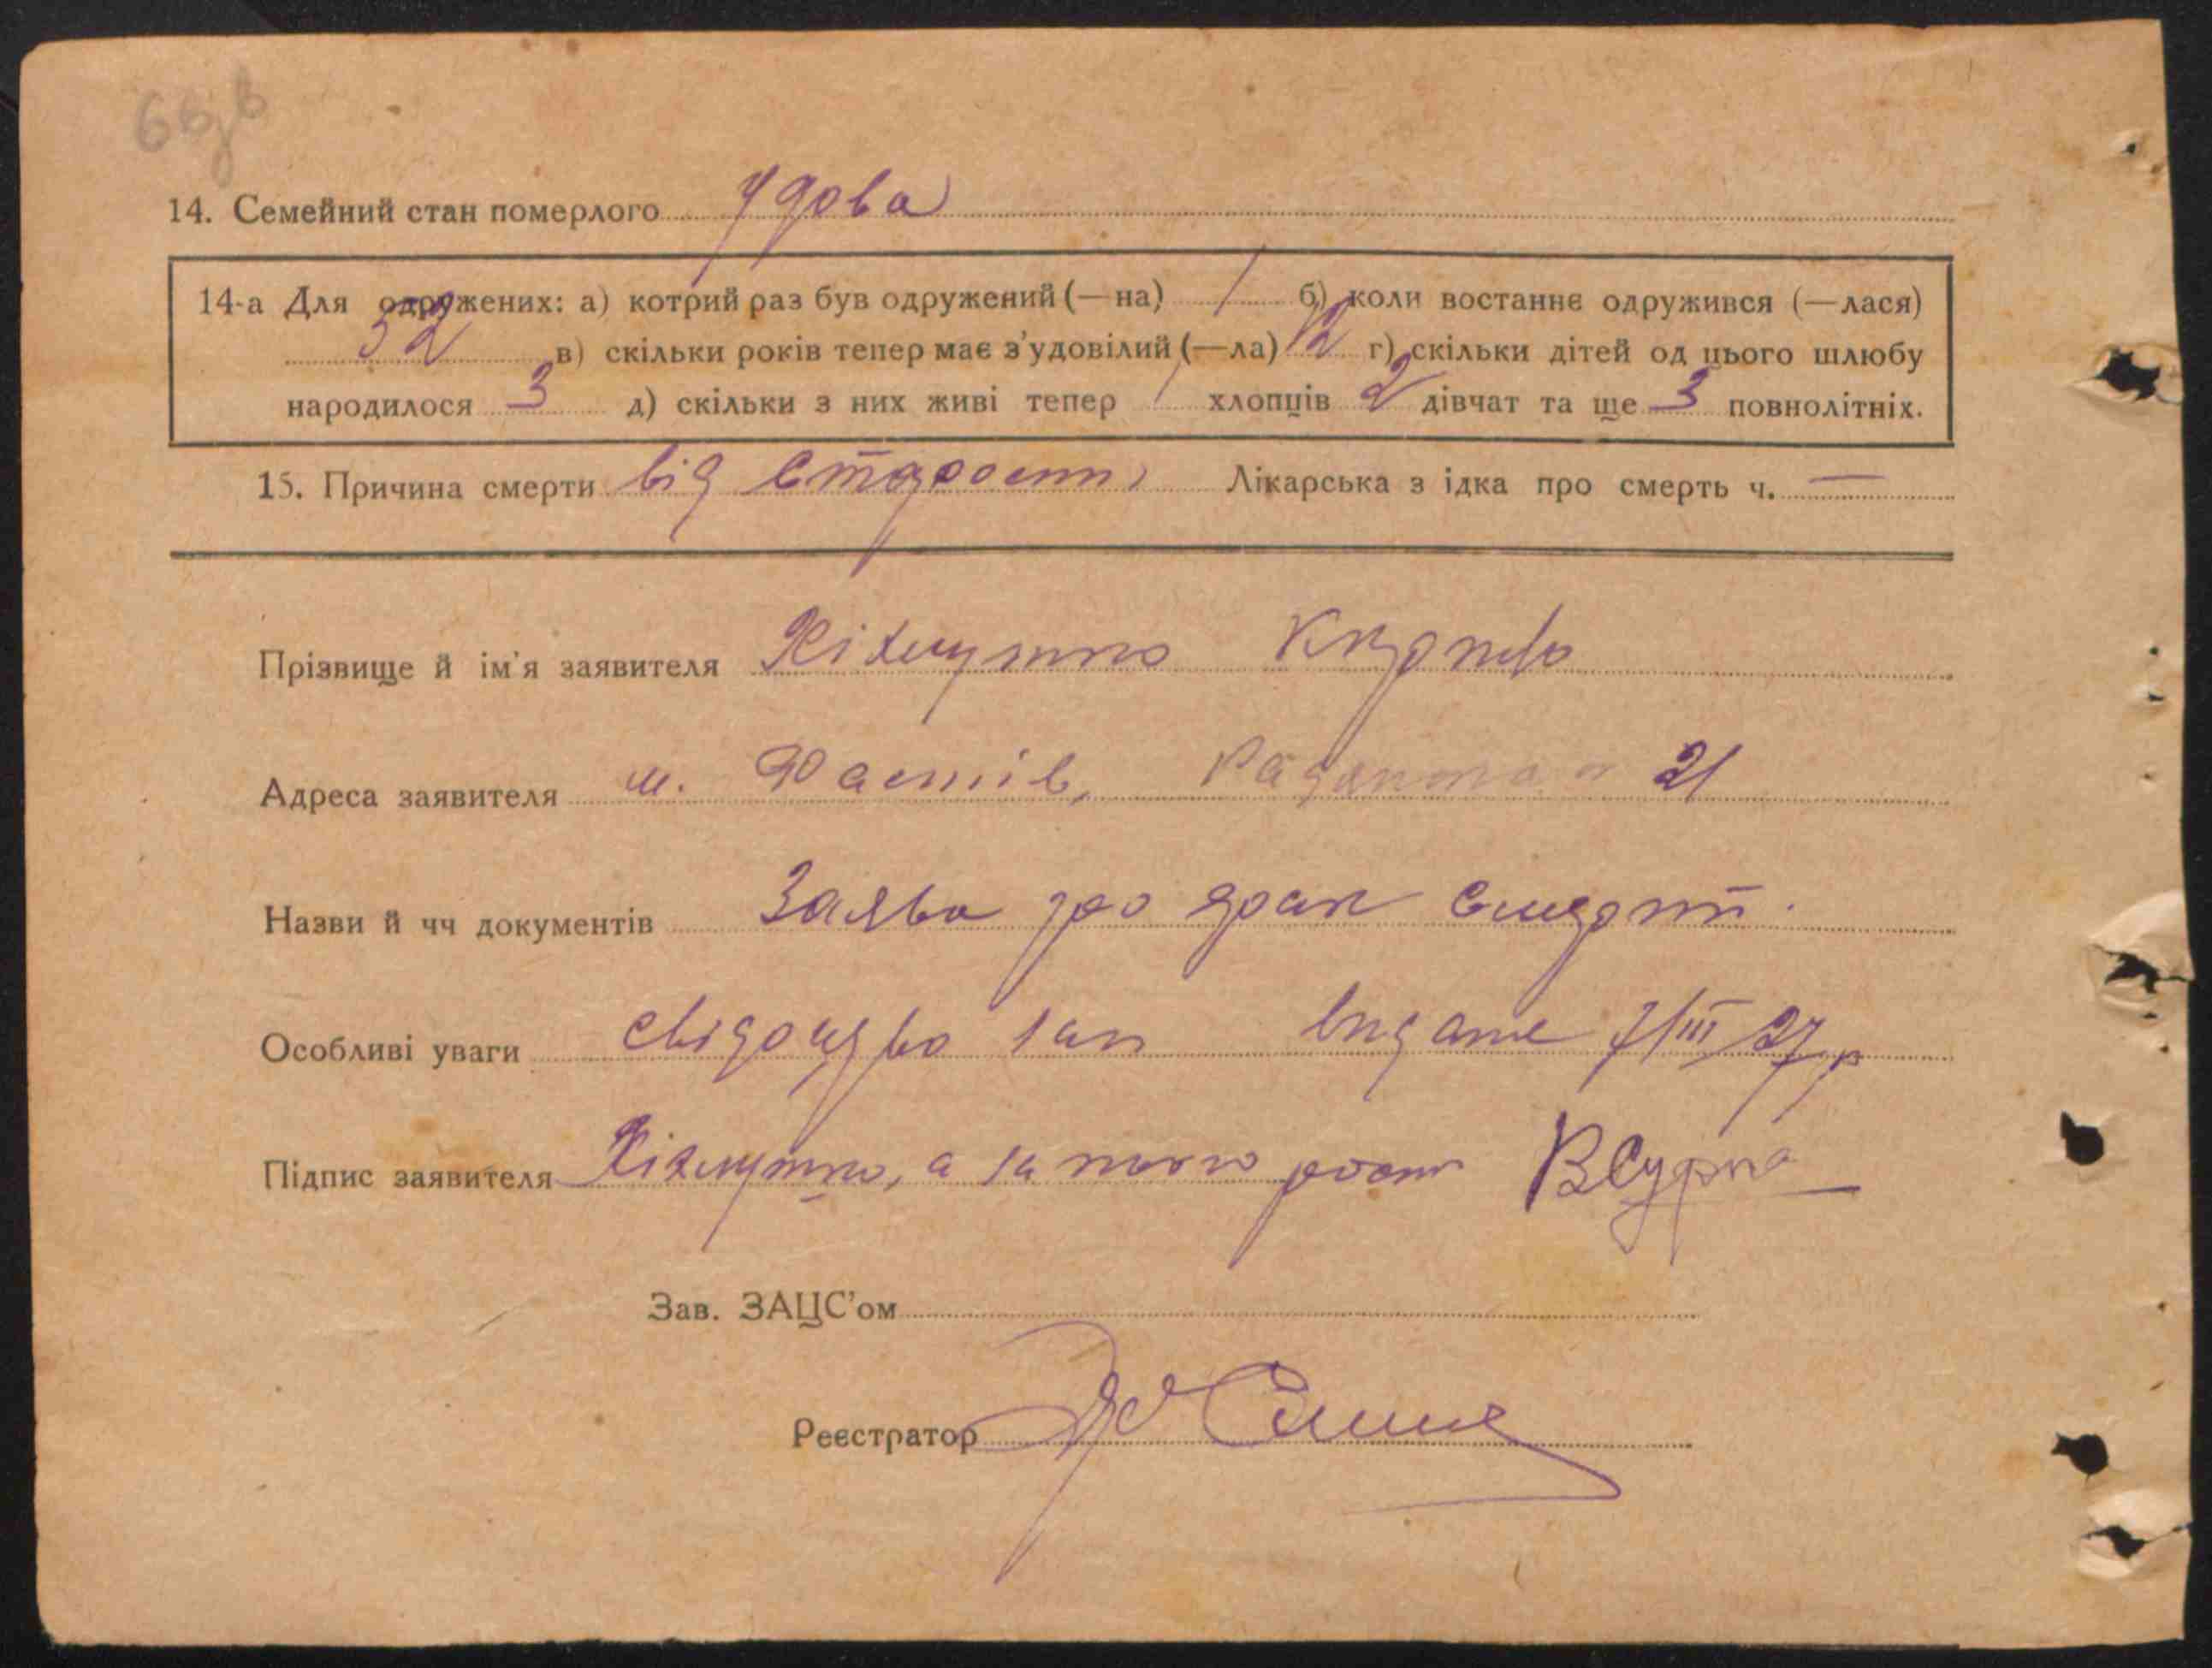 14. Семейний стан померлого Удова
14-а Для одружених: а) котрий раз був одружений (—на) 1 б) коли востаннє одружився (—лася)
52 в) скільки років тепер має з'удовілий (—ла) 12 г) скільки дітей од цього шлюбу
народилося 3 д) скільки з них живі тепер 1 хлопців 2 дівчат та ще 3 повнолітніх.
15. Причина смерти від старости Лікарська з ідка про смерть ч. —
Прізвище й ім'я заявителя
Адреса заявителя м. Фастів, 21
Назви й чч документів Заява про факт смерти.
Особливі уваги свідоцтво видане 7/III 27 р
Підпис заявителя а за нього
Зав. ЗАЦС'ом
Реєстратор